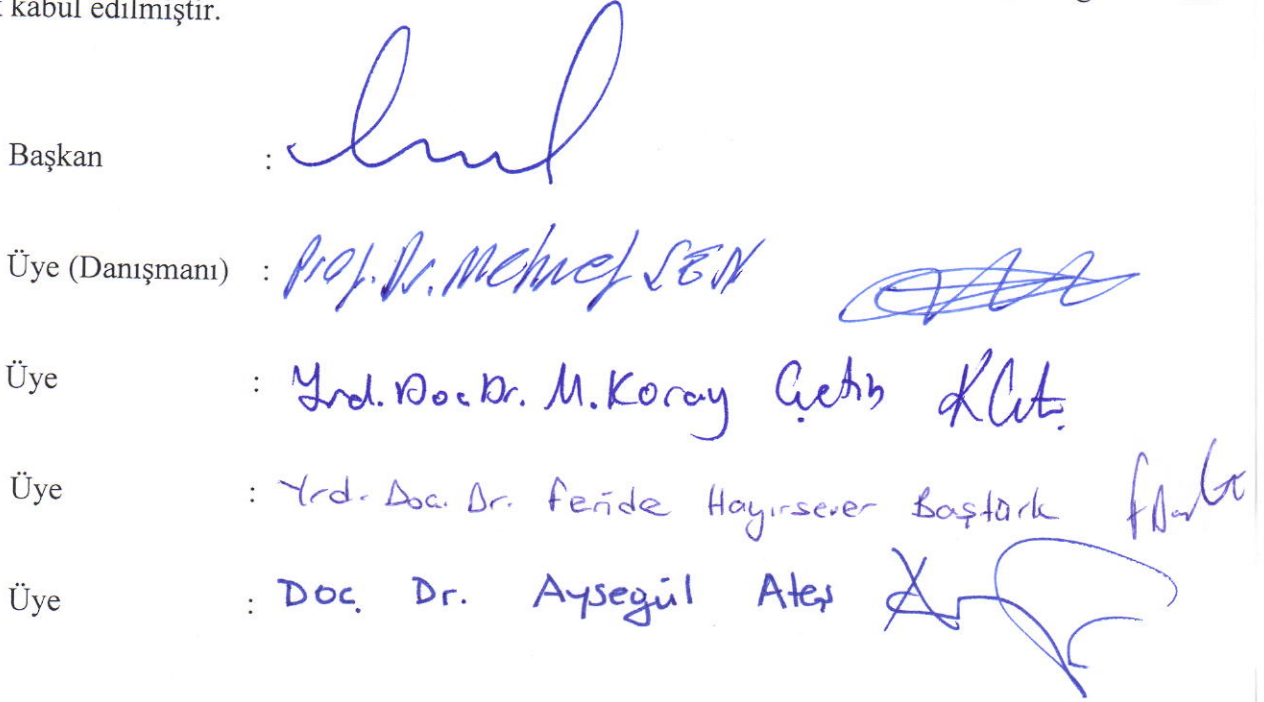 kabul edilmiştir.
Başkan :
Üye (Danışmanı) : Prof. Dr. Mehmet ŞEN
Üye : Yrd. Doc Dr. M. Koray Çetin
Üye : Yrd. Doc. Dr. Feride Hayırsever Baştürk
Üye : Doç. Dr. Ayşegül Ateş